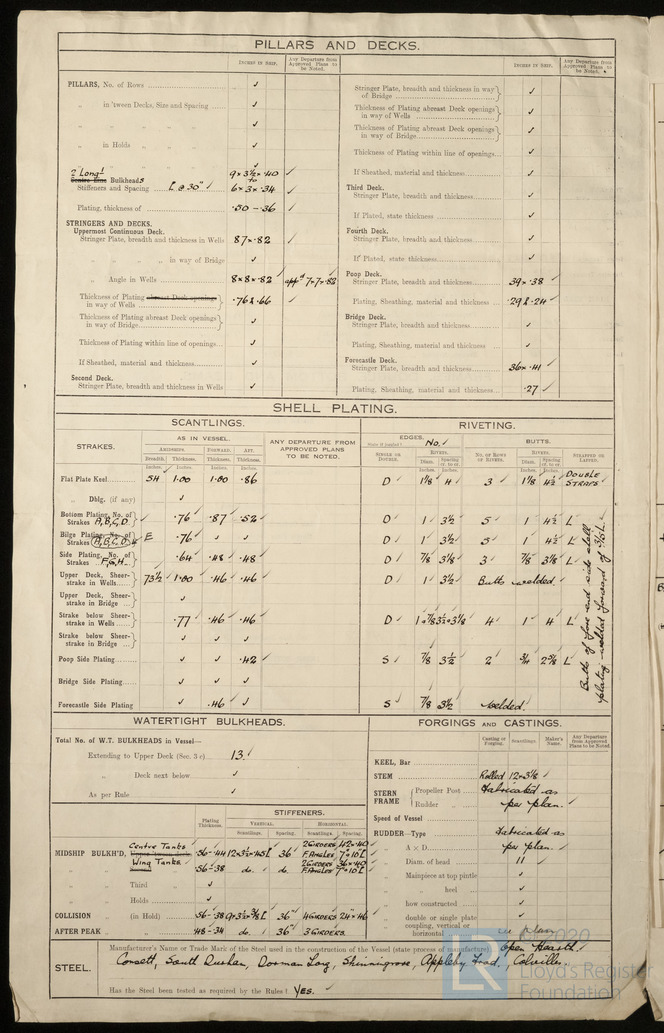 PILLARS AND DECKS.
INCHES IN SHIP.
Any Departure from Approved Plans to be Noted.
PILLARS, No. of Rows ✓
„ in 'tween Decks, Size and Spacing ✓
„ „ „ „ ✓
„ in Holds „ „ ✓
„ „ „ ✓
2 Longl Bulkheads
Stiffeners and Spacing [ @ 30" ✓ 9 × 3½ × .40 to 6 × 3 × .34 ✓
Plating, thickness of .50 - .36 ✓
STRINGERS AND DECKS.
Uppermost Continuous Deck.
Stringer Plate, breadth and thickness in Wells 87 × .82 ✓
„ „ „ „ in way of Bridge ✓
„ Angle in Wells 8 × 8 × .82 ✓ appd 7 × 7 × .82
Thickness of Plating abreast Deck openings in way of Wells .76 & .66 ✓
Thickness of Plating abreast Deck openings in way of Bridge ✓
Thickness of Plating within line of openings ✓
If Sheathed, material and thickness ✓
Second Deck.
Stringer Plate, breadth and thickness in Wells ✓
INCHES IN SHIP.
Any Departure from Approved Plans to be Noted.
Stringer Plate, breadth and thickness in way of Bridge ✓
Thickness of Plating abreast Deck openings in way of Wells ✓
Thickness of Plating abreast Deck openings in way of Bridge ✓
Thickness of Plating within line of openings ✓
If Sheathed, material and thickness ✓
Third Deck.
Stringer Plate, breadth and thickness ✓
If Plated, state thickness ✓
Fourth Deck.
Stringer Plate, breadth and thickness ✓
If Plated, state thickness ✓
Poop Deck.
Stringer Plate, breadth and thickness 39 × .38 ✓
Plating, Sheathing, material and thickness .29 & .24 ✓
Bridge Deck.
Stringer Plate, breadth and thickness ✓
Plating, Sheathing, material and thickness ✓
Forecastle Deck.
Stringer Plate, breadth and thickness 36 × .41 ✓
Plating, Sheathing, material and thickness .27 ✓
SHELL PLATING.
SCANTLINGS.
RIVETING.
STRAKES.
AS IN VESSEL.
AMIDSHIPS. FORWARD. AFT.
Breadth. Thickness. Thickness. Thickness.
Inches. Inches. Inches. Inches.
ANY DEPARTURE FROM APPROVED PLANS TO BE NOTED.
EDGES. No. ✓
State if joggled?
SINGLE OR DOUBLE.
RIVETS.
Diam. Spacing cr. to cr.
BUTTS.
No. OF ROWS OF RIVETS.
RIVETS.
Diam. Spacing cr. to cr.
STRAPPED OR LAPPED.
Flat Plate Keel 54 1.00 1.00 .86 D 1⅛ 4 3 1⅛ 4½ DOUBLE STRAPS
„ Dblg. (if any) ✓
Bottom Plating, No. of Strakes A,B,C,D .76 .87 .52 D 1 3½ 5 1 4½ L
Bilge Plating, No. of Strakes A,B,C,D & E .76 ✓ ✓ D 1 3½ 5 1 4½ L
Side Plating, No. of Strakes F,G,H .64 .48 .48 D ⅞ 3½ 3 ⅞ 3½ L
Upper Deck, Sheerstrake in Wells 73½ 1.00 .46 .46 D 1 3½ Butts welded.
Upper Deck, Sheerstrake in Bridge ✓
Strake below Sheerstrake in Wells .77 .46 .46 D 1 & ⅞ 3½ & 3⅛ 4 1 4 L
Strake below Sheerstrake in Bridge ✓ ✓ ✓
Poop Side Plating ✓ ✓ .42 S ⅞ 3½ 2 ¾ 2⅝ L
Bridge Side Plating ✓ ✓ ✓
Forecastle Side Plating .46 ✓ S ⅞ 3½ welded.
Butts of fore end side shell
plating welded forward of
WATERTIGHT BULKHEADS.
Total No. of W.T. BULKHEADS in Vessel—
Extending to Upper Deck (Sec. 3 c) 13 ✓
„ Deck next below ✓
As per Rule ✓
Plating Thickness.
STIFFENERS.
VERTICAL. HORIZONTAL.
Scantlings. Spacing. Scantlings. Spacing.
MIDSHIP BULKH'D, Centre Tanks .56-.44 12×3½×.45 [ 36" 2 GIRDERS 42×.40 F. ANGLES 7"×10 [
Wing Tanks .56-.38 do. do. 2 GIRDERS 36×.40 F. ANGLES 7"×10 [
„ Third „ ✓
„ Holds ✓
COLLISION „ (in Hold) .56-.38 9×3½×⅜ [ 36" 4 GIRDERS 24×.46
AFTER PEAK „ „ .48-.34 do. 36" 3 GIRDERS.
FORGINGS AND CASTINGS.
Casting or Forging. Scantlings. Maker's Name. Any Departure from Approved Plans to be Noted.
KEEL, Bar
STEM Rolled 12 × 3⅛ ✓
STERN FRAME { Propeller Post Fabricated as
Rudder „ per plan. ✓
Speed of Vessel
RUDDER—Type Fabricated as
„ A × D per plan. ✓
„ Diam. of head 11 ✓
„ Mainpiece at top pintle ✓
„ „ heel ✓
„ how constructed ✓
„ double or single plate
coupling, vertical or
horizontal
STEEL.
Manufacturer's Name or Trade Mark of the Steel used in the construction of the Vessel (state process of manufacture) Open Hearth.
Consett, South Durham, Dorman Long, Skinningrove, Appleby Frod., Colvilles.
Has the Steel been tested as required by the Rules? YES.
© 2020
LR
Lloyd's Register
Foundation